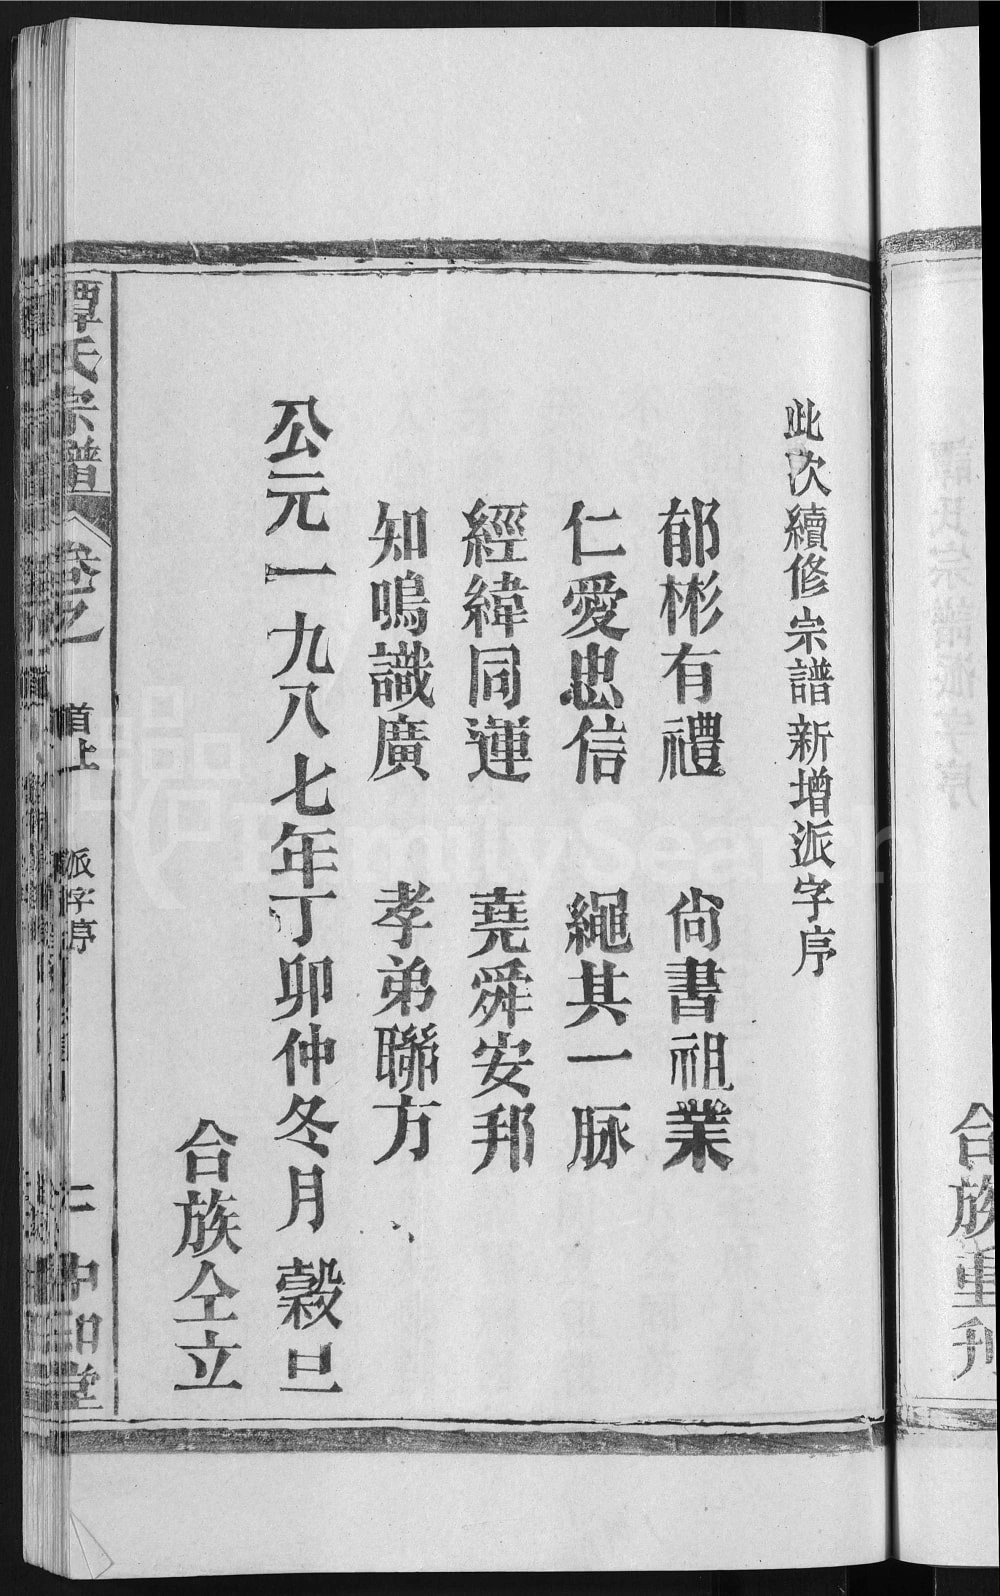 此次續修宗譜新增派字序
郁彬有禮 尙書祖業
仁愛忠信 繩其一脉
經緯同運 堯舜安邦
知鳴識廣 孝弟聯方
公元一九八七年丁卯仲冬月穀旦
合族仝立
譚氏宗譜 卷之 首上 派字序 二 中和堂
合族重刊